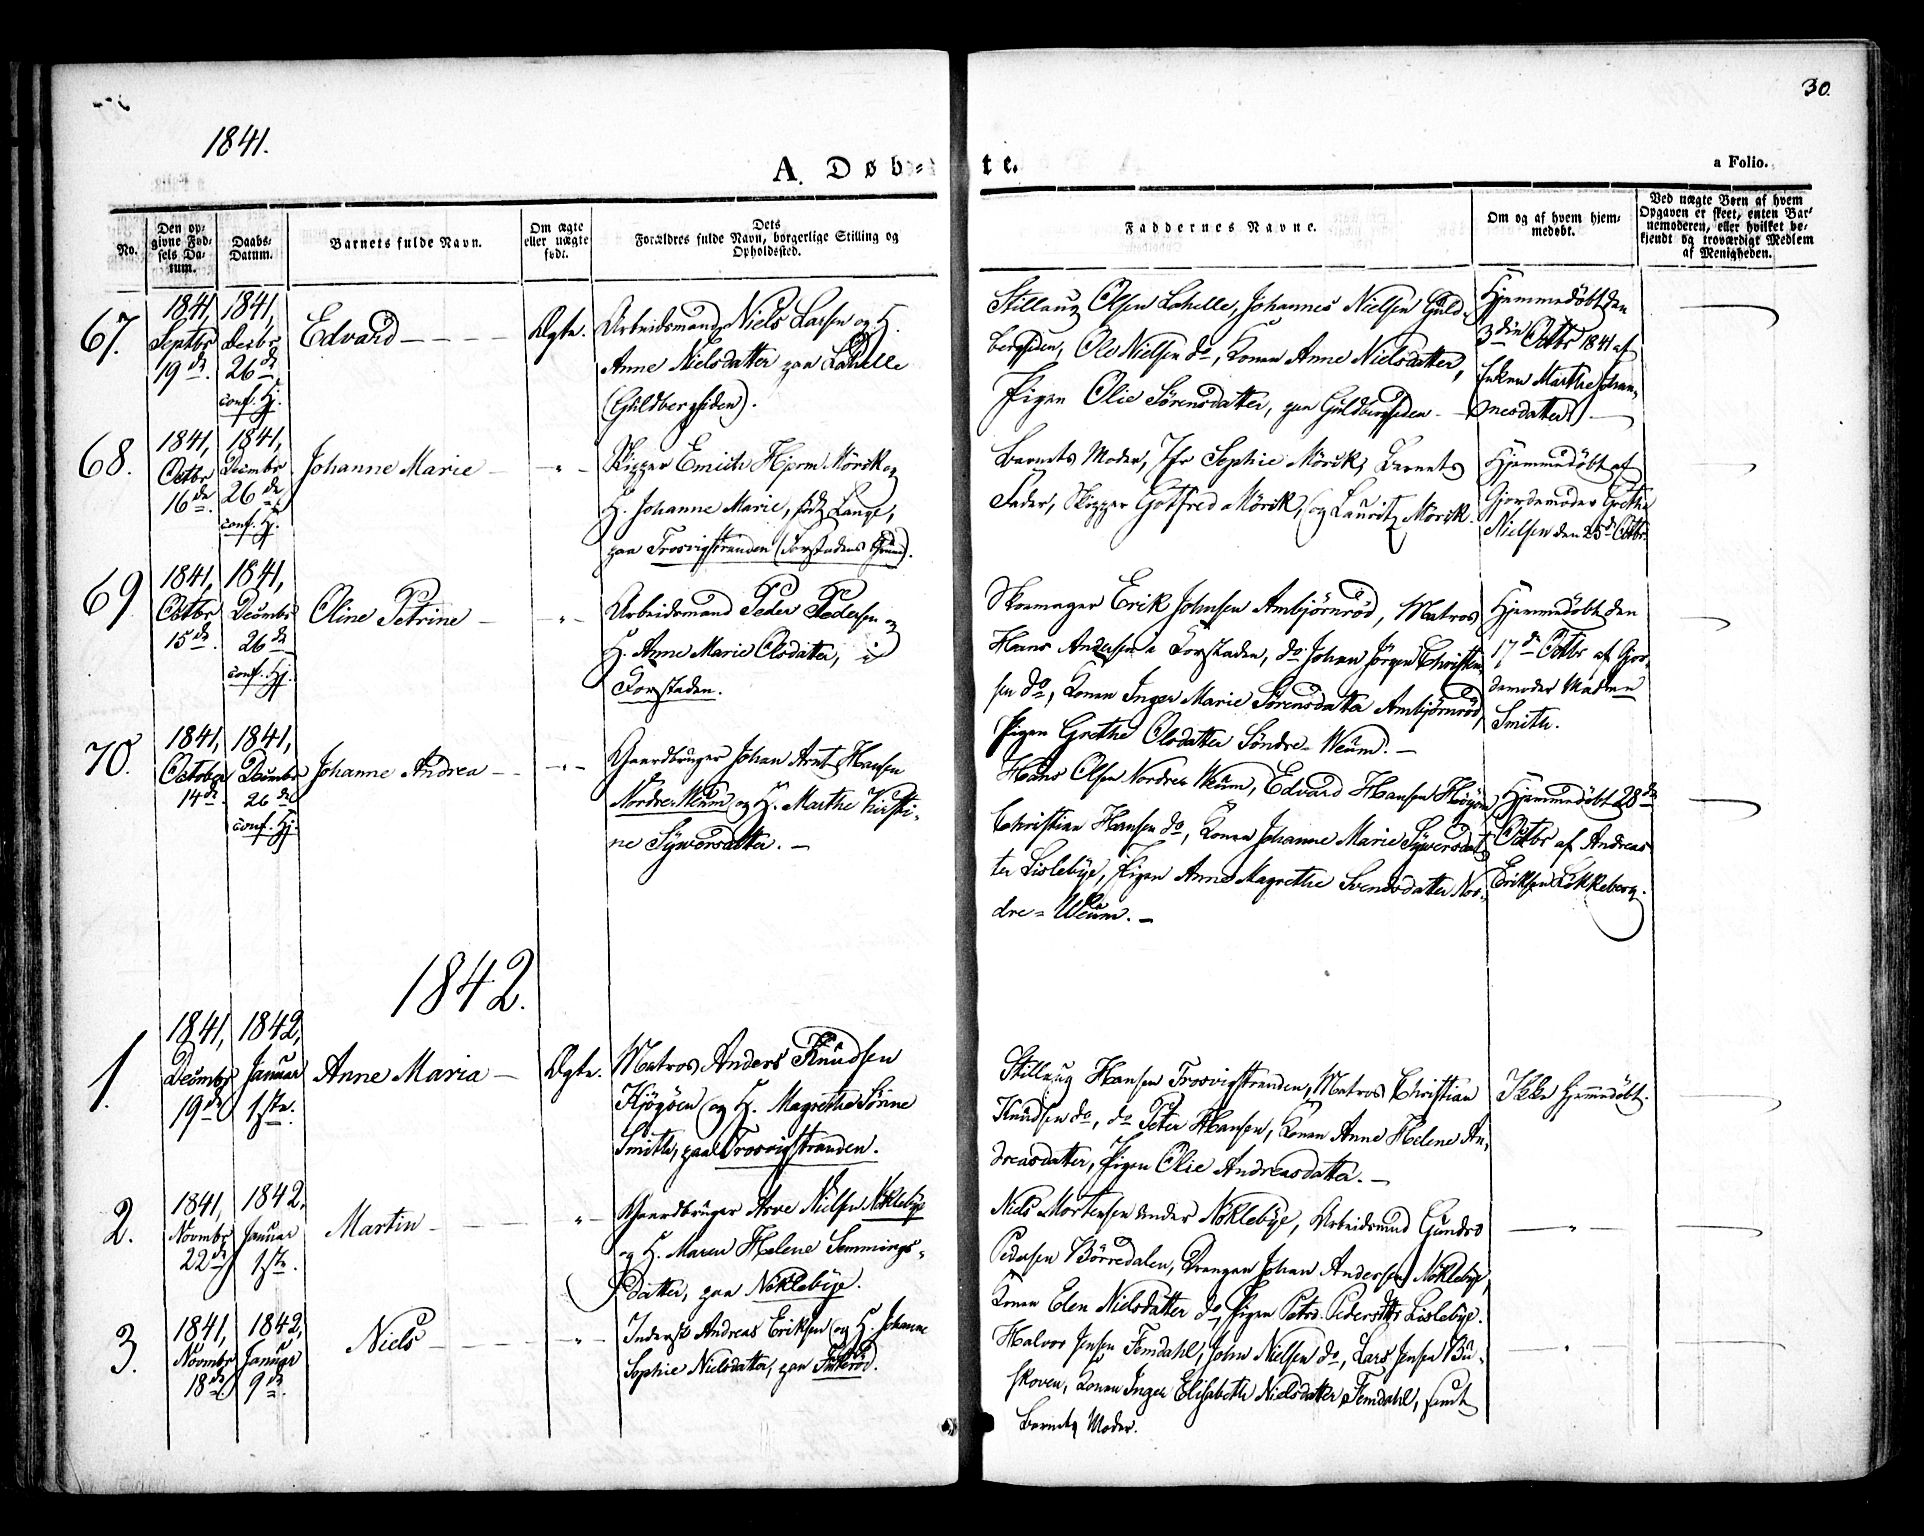 30.
1841.
A. Døb=
te.
a Folio.
No.
Den op-
givne Fød-
sels Da-
tum.
Daabs-
Datum.
Barnets fulde Navn.
Om ægte
eller uægte
født.
Dets
Forældres fulde Navn, borgerlige Stilling og
Opholdssted.
Faddernes Navne.
Om og af hvem hjem-
medøbt.
Ved uægte Børn af hvem
Opgaven er skeet, enten Bar-
nemoderen, eller hvilket be-
kjendt og troværdigt Medlem
af Menigheden.
67.
1841,
Septbr
19de.
1841,
Decbr
26de
conf. Hj.
Edvard
Ægte.
Arbeidsmand Niels Larsen og H.
Anne Nielsdatter paa Lahelle
(Guldbergsiden).
Stillaug Olsen Lahelle, Johannes Nielsen Guld-
bergsiden, Ole Nielsen do, Konen Anne Nielsdatter,
Pigen Olie Sørensdatter, paa Guldbergsiden.
Hjemmedöbt den
3die Octbr 1841 af
Enken Marthe Johan-
nesdatter.
68.
1841,
Octbr
16de.
1841,
Decembr
26de
conf. Hj.
Johanne Marie
"
Skipper Emich Hjorn. Mörck og
H. Johanne Marie, född Lange,
paa Trosvigstranden (Forstadens Grund).
Barnets Moder, Jfr Sophie Mörck, Barnets
Fader, Skipper Gotfred Mörck, og Lauritz Mörck.
Hjemmedöbt af
Gjordemoder Grethe
Nielsen den 25de Octbr
69
1841,
Octbr
15de.
1841,
Decembr
26de
conf. Hj.
Oline Petrine
"
Arbeidsmand Peder Pedersen og
H. Anne Marie Olsdatter, i
Forstaden.
Skomager Erik Johnsen Ambjörnröd, Matros
Hans Andersen i Forstaden, do Johan Jörgen Christen-
sen do, Konen Inger Marie Sörensdatter Ambjörnröd,
Pigen Grethe Olsdatter Söndre-Weum.
Hjemmedöbt den
17de Octbr af Gjor-
demoder Madam
Smith.
70.
1841,
October
14de
1841,
Decembr
26de
conf. Hj.
Johanne Andrea
"
Gaardbruger Johan Arnt Hansen
Nordre Weum og H. Marthe Kirsti-
ne Syversdatter.
Hans Olsen Nordre Weum, Edvard Hansen
Christian Hansen do, Konen Johanne Marie Syversdat-
ter Lislebye, Pigen Anne Magrethe Svendsdatter Nor-
dre-Weum.
Hjemmedöbt 28de
Octbr af Andreas
Eriksen Lökkeberg.
1842.
1.
1841,
Decembr
19de
1842,
Januar
1ste.
Anne Maria
Ægte.
Matros Anders Knudsen
Kjögöen og H. Magrethe Sörine
Smith, paa Trosvigstranden.
Stillaug Hansen Trosvigstranden, Matros Christian
Knudsen do, do Peter Hansen, Konen Anne Helene An-
dreasdatter, Pigen Olie Andreasdatter.
Ikke hjemmedöbt.
2.
1841,
Novembr
22de
1842,
Januar
1ste.
Martin
"
Gaardbruger Arve Nielsen Nöklebye
og H. Maren Helene Semmings-
datter, paa Nöklebye.
Niels Mortensen under Nöklebye, Arbeidsmand Gunder
Pedersen Börredalen, Drengen Johan Andersen Nöklebye,
Konen Elen Nielsdatter do, Pigen Petro. Pedersdtr Lislebye.
"
3.
1841,
Novembr
18de
1842,
Januar
9de.
Niels
"
Inderst Andreas Eriksen og H. Johanne
Sophie Nielsdatter, paa
Halvor Jensen Femdahl, John Nielsen do, Lars Jensen Bu-
skoven, Konen Inger Elisabeth Nielsdatter Femdahl, samt
Barnets Moder.
"